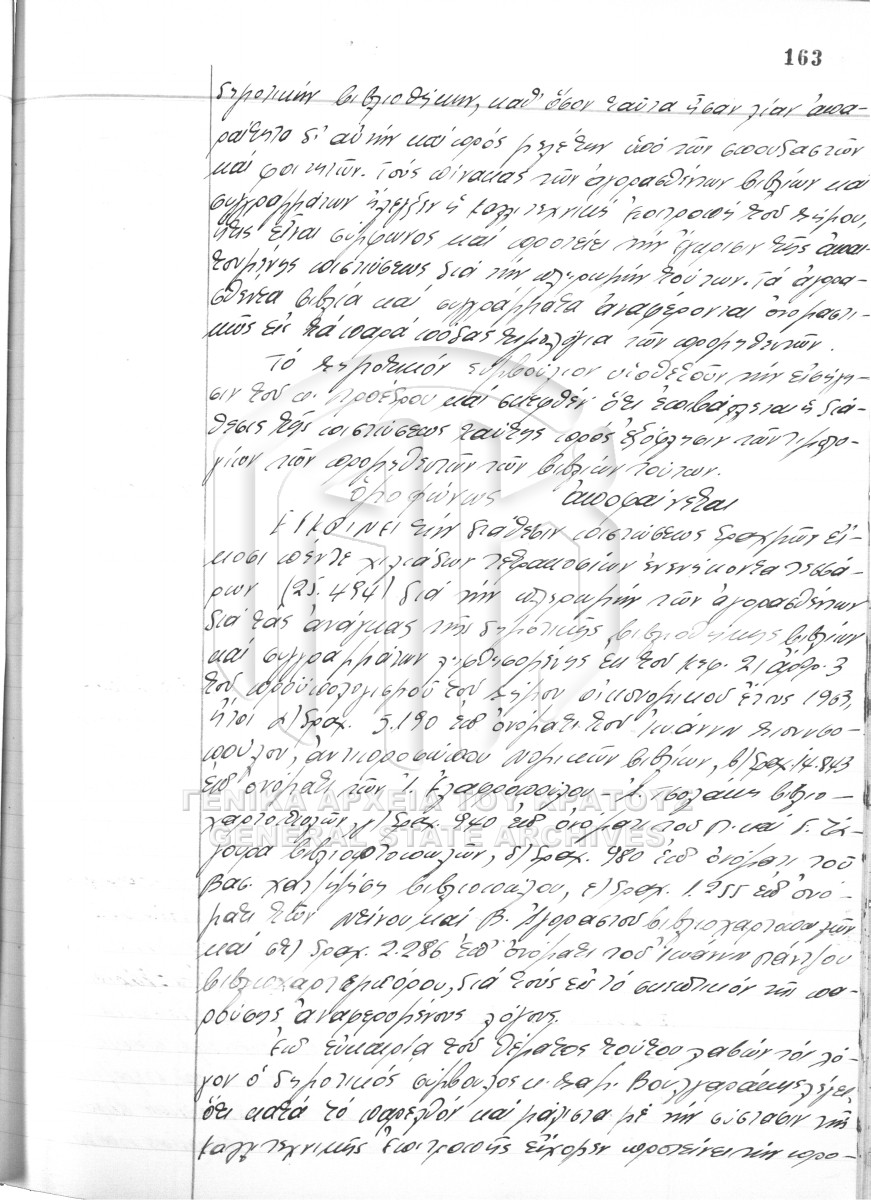 163
δημοτικὴν βιβλιοθήκην, καθ' ὅσον ταῦτα ἦσαν λίαν ἀπα-
ραίτητα δι' αὐτὴν καὶ πρὸς μελέτην ὑπὸ τῶν σπουδαστῶν
καὶ φοιτητῶν. Τοὺς πίνακας τῶν ἀγορασθέντων βιβλίων καὶ
συγγραμμάτων ἤλεγξεν ἡ καλλιτεχνικὴ ἐπιτροπὴ τοῦ Δήμου,
ἥτις εἶναι σύμφωνος καὶ προτείνει τὴν ἔγκρισιν τῆς ἀπαι-
τουμένης πιστώσεως διὰ τὴν πληρωμὴν τούτων. Τὰ ἀγορα-
σθέντα βιβλία καὶ συγγράμματα ἀναφέρονται ὀνομαστι-
κῶς εἰς τὰ παρὰ πόδας τιμολόγια τῶν προμηθευτῶν.
Τὸ Δημοτικὸν Συμβούλιον υἱοθετοῦν τὴν εἰσήγη-
σιν τοῦ κ. Προέδρου καὶ σκεφθὲν ὅτι ἐπιβάλλεται ἡ διά-
θεσις τῆς πιστώσεως ταύτης πρὸς ἐξόφλησιν τῶν τιμολο-
γίων τῶν προμηθευτῶν τῶν βιβλίων τούτων.
ὁμοφώνως ἀποφαίνεται
ΕΓΚΡΙΝΕΙ τὴν διάθεσιν πιστώσεως δραχμῶν εἴ-
κοσι πέντε χιλιάδων τετρακοσίων ἐνενήκοντα τεσσά-
ρων (25.494) διὰ τὴν πληρωμὴν τῶν ἀγορασθέντων
διὰ τὰς ἀνάγκας τῆς δημοτικῆς βιβλιοθήκης βιβλίων
καὶ συγγραμμάτων ληφθησομένης ἐκ τοῦ κεφ. 21 ἄρθρ. 3
τοῦ προϋπολογισμοῦ τοῦ Δήμου οἰκονομικοῦ ἔτους 1963,
ἤτοι α) δραχ. 5.190 ἐπ' ὀνόματι τοῦ Ἰωάννη Διονυσο-
πούλου, ἀντιπροσώπου νομικῶν βιβλίων, β) δραχ. 14.843
ἐπ' ὀνόματι τῶν Ἰ. Ἐλαφροπούλου βιβλιο-
χαρτοπωλῶν, γ) δραχ. 940 ἐπ' ὀνόματι τοῦ Π. καὶ Γ.
βιβλιοπωλῶν, δ) δραχ. 980 ἐπ' ὀνόματι τοῦ
Βασ. βιβλιοπώλου, ε) δραχ. 1.255 ἐπ' ὀνό-
ματι τῶν Ντίνου καὶ Β. Ἀγοραστοῦ βιβλιοχαρτοπωλῶν
καὶ στ) δραχ. 2.286 ἐπ' ὀνόματι τοῦ Ἰωάννη Πάντζου
βιβλιοχαρτεμπόρου, διὰ τοὺς εἰς τὸ σκεπτικὸν τῆς πα-
ρούσης ἀναφερομένους λόγους.
Ἐπ' εὐκαιρίᾳ τοῦ θέματος τούτου λαβὼν τὸν λό-
γον ὁ δημοτικὸς σύμβουλος κ. Δαμ. Βουλγαράκης λέγει
ὅτι κατὰ τὸ παρελθὸν καὶ μάλιστα μὲ τὴν σύστασιν τῆς
καλλιτεχνικῆς ἐπιτροπῆς εἴχομεν προτείνει τὴν προ-
ΓΕΝΙΚΑ ΑΡΧΕΙΑ ΤΟΥ ΚΡΑΤΟΥΣ
GENERAL STATE ARCHIVES